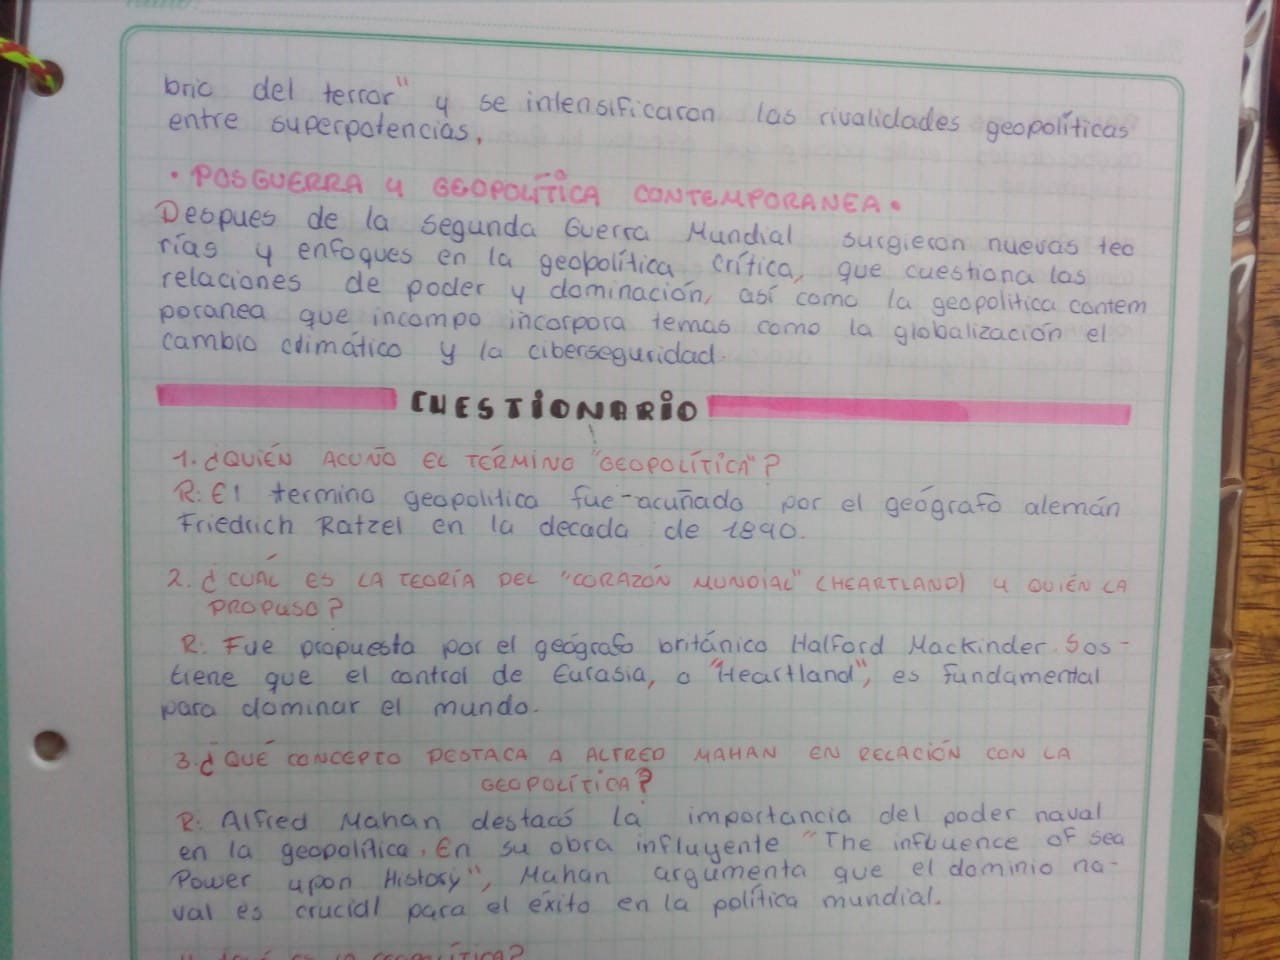 bric del terror" y se intensificaron las rivalidades geopolíticas
entre superpotencias.
• POSGUERRA y GEOPOLÍTICA CONTEMPORANEA •
Despues de la segunda Guerra Mundial surgieron nuevas teo
rías y enfoques en la geopolítica crítica, que cuestiona las
relaciones de poder y dominación, así como la geopolitica contem
poranea que incompo incorpora temas como la globalización el
cambio climático y la ciberseguridad.
CUESTIONARIO
1. ¿QUIÉN ACUÑO EL TÉRMINO "GEOPOLÍTICA"?
R: El termino geopolitica fue acuñado por el geógrafo alemán
Friedrich Ratzel en la decada de 1890.
2. ¿CUÁL ES LA TEORÍA DEL "CORAZÓN MUNDIAL" (HEARTLAND) y QUIÉN LA
PROPUSO?
R: Fue propuesta por el geógrafo británico Halford Mackinder. Sos-
tiene que el control de Eurasia, o "Heartland", es fundamental
para dominar el mundo.
3. ¿QUÉ CONCEPTO DESTACA A ALFRED MAHAN EN RELACIÓN CON LA
GEOPOLÍTICA?
R: Alfred Mahan destacó la importancia del poder naval
en la geopolítica. En su obra influyente "The influence of sea
Power upon History", Mahan argumenta que el dominio na-
val es crucial para el éxito en la política mundial.